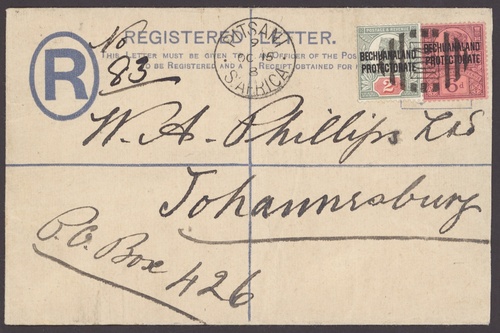 REGISTERED LETTER.
THIS LETTER MUST BE GIVEN TO AN OFFICER OF THE POST
TO BE REGISTERED AND A RECEIPT OBTAINED FOR
R
No
83
OC 15
8
S. AFRICA
BECHUANALAND
PROTECTORATE
2
BECHUANALAND
PROTECTORATE
6d
W. A. Phillips Ltd
Johannesburg
P.O. Box
426